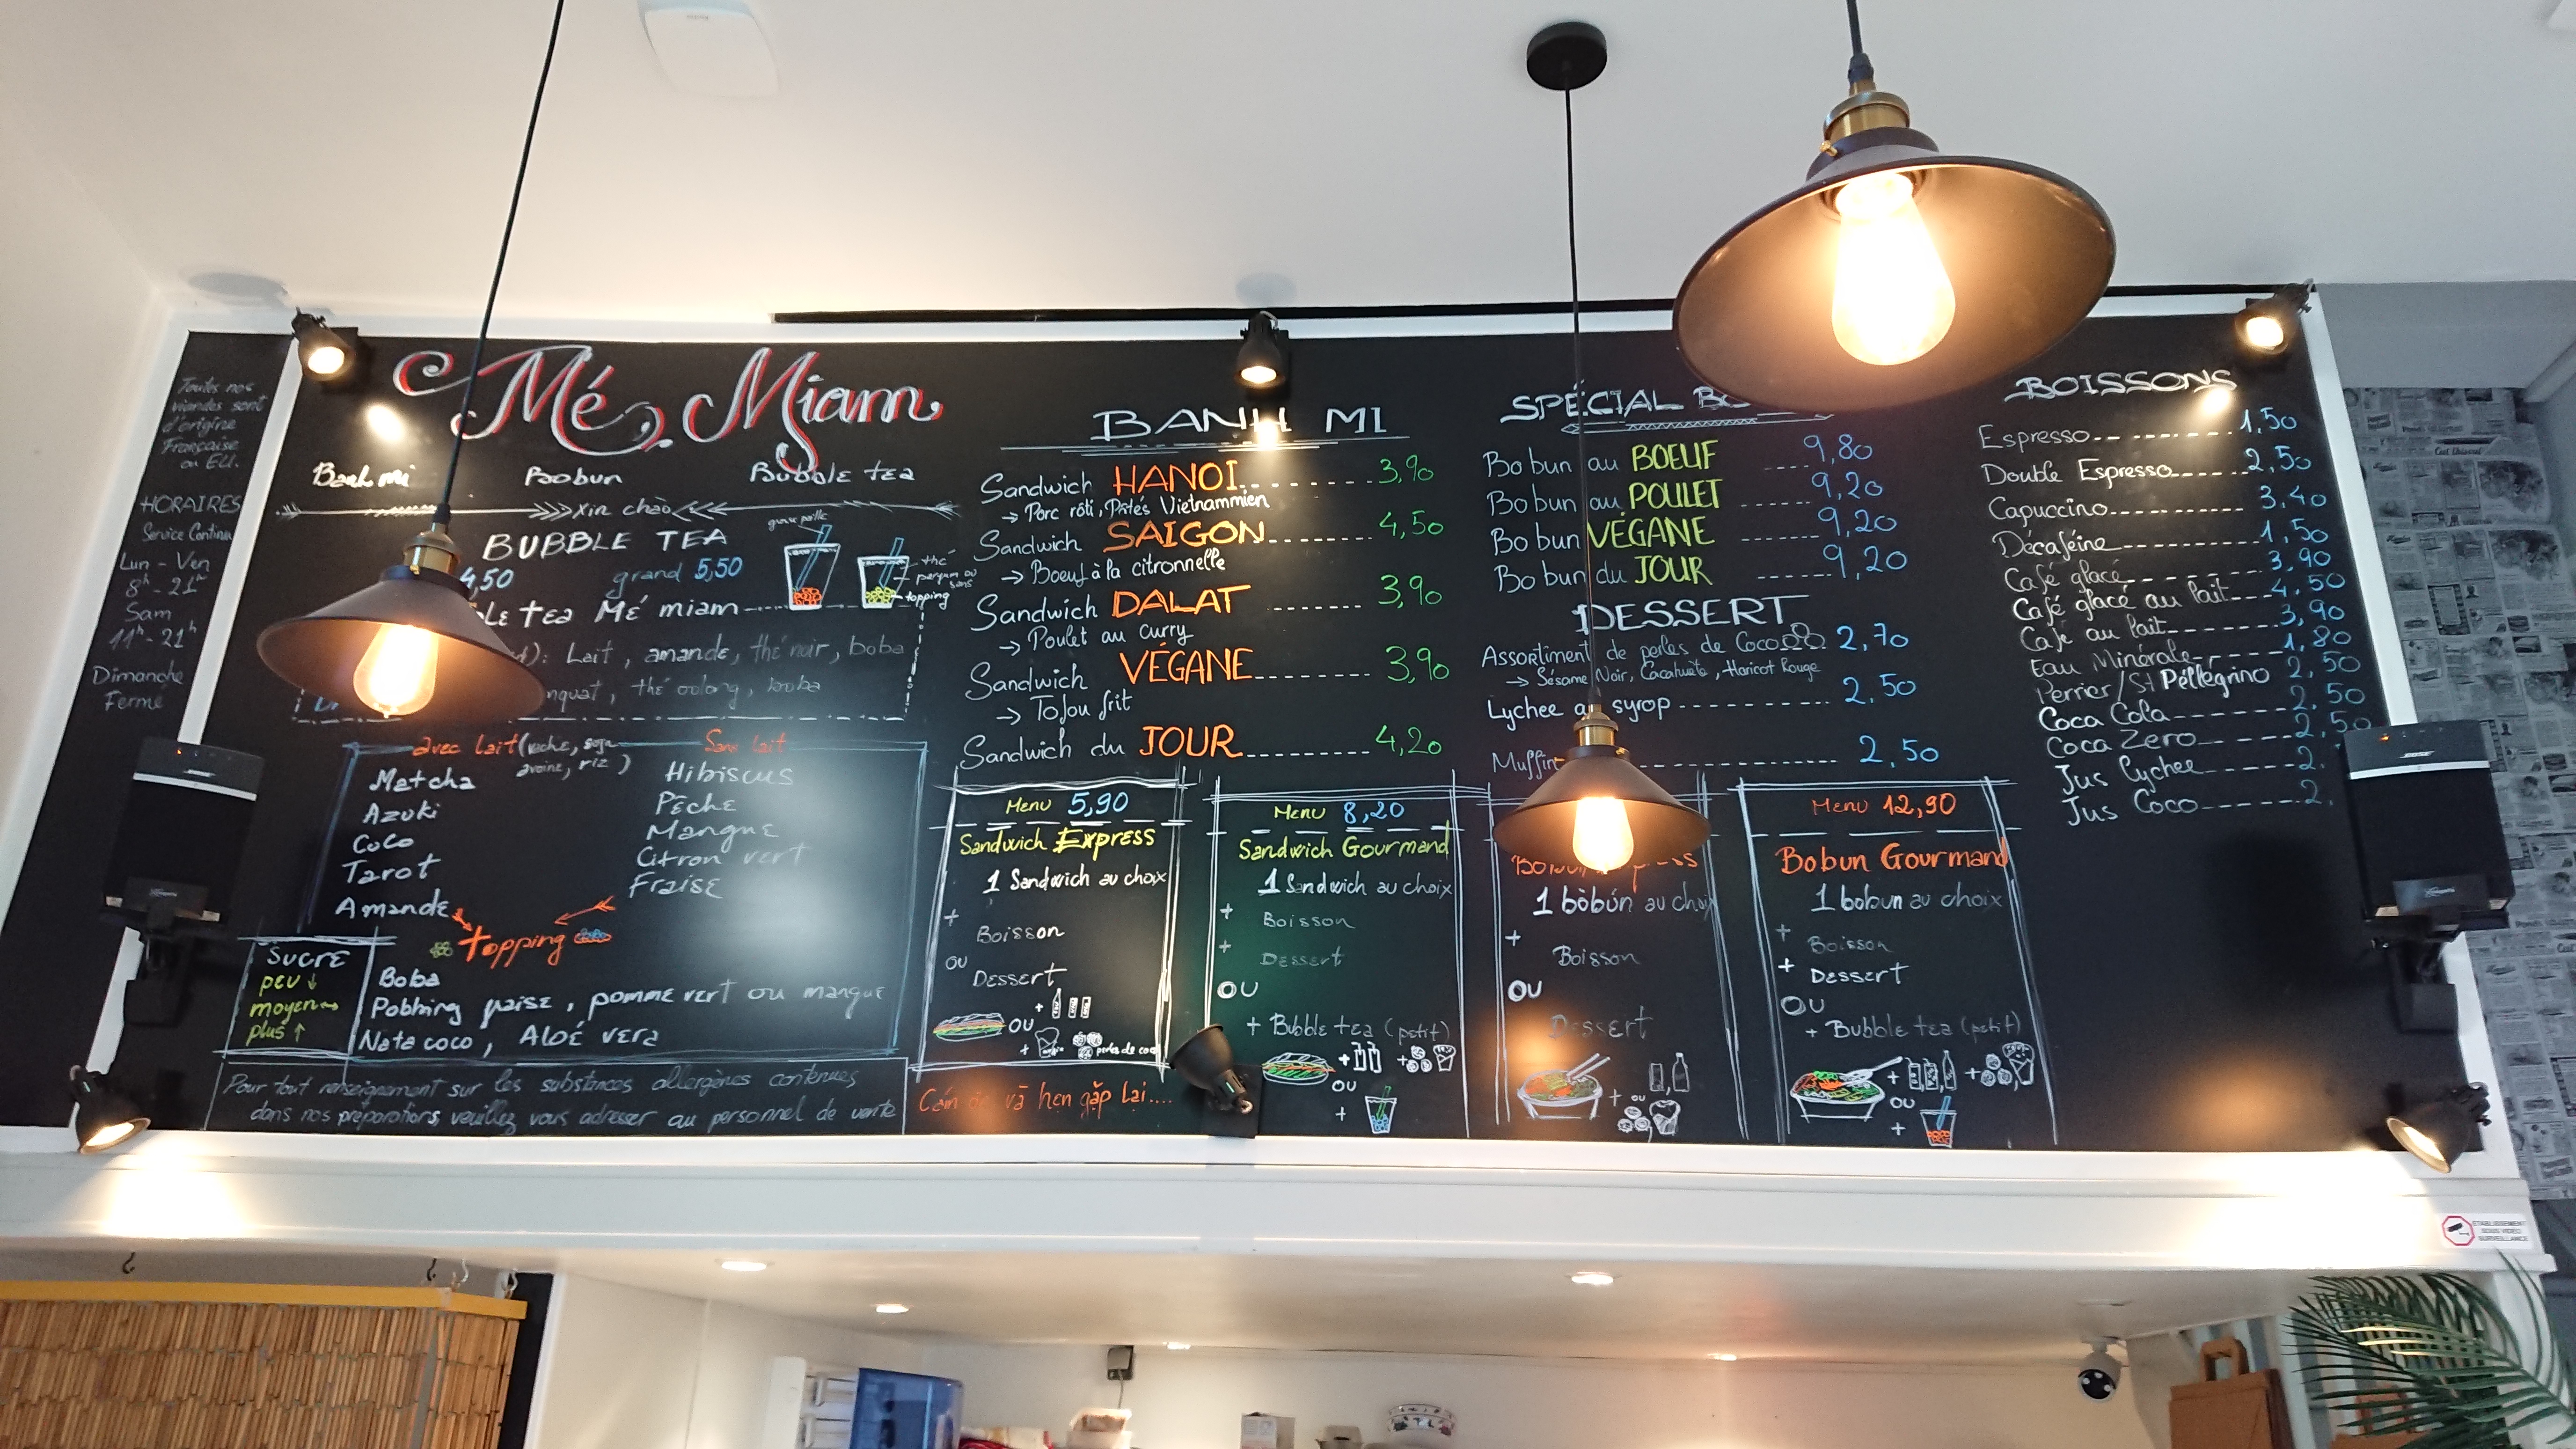 Toutes nos
viandes sont
d'origine
Française
ou EU.
HORAIRES
Service Continu
Lun - Ven
8h - 21h
Sam
11h - 21h
Dimanche
Fermé
Mé Miam
Banh mi Bobun Bubble tea
Xin chào
BUBBLE TEA
4,50 grand 5,50
grosse paille
thé
parfum ou
sans
topping
tea Mé miam
Lait, amande, thé noir, boba
thé oolong, boba
avec lait (vache, soja
avoine, riz)
Matcha
Azuki
Coco
Tarot
Amande
Sans lait
Hibiscus
Pêche
Mangue
Citron vert
Fraise
topping
Boba
Pobbing fraise, pomme vert ou mangue
Nata coco, Aloé vera
Sucre
peu ↓
moyen →
plus ↑
Pour tout renseignement sur les substances allergènes contenues
dans nos préparations, veuillez vous adresser au personnel de vente
BANH MI
Sandwich HANOI 3,90
→ Porc rôti, Pâtés Vietnammien
Sandwich SAIGON 4,50
→ Boeuf à la citronnelle
Sandwich DALAT 3,90
→ Poulet au curry
Sandwich VÉGANE 3,90
→ Tofou frit
Sandwich du JOUR 4,20
Menu 5,90
Sandwich Express
1 Sandwich au choix
+
Boisson
ou
Dessert
+
OU
+
perles de coco
Cám ơn và hẹn gặp lại....
Menu 8,20
Sandwich Gourmand
1 Sandwich au choix
+
Boisson
+
Dessert
OU
+ Bubble tea (petit)
+ +
OU
+
SPÉCIAL
Bo bun au BOEUF 9,80
Bo bun au POULET 9,20
Bo bun VÉGANE 9,20
Bo bun du JOUR 9,20
DESSERT
Assortiment de perles de Coco 2,70
→ Sésame Noir, Cacahuète, Haricot Rouge
Lychee syrop 2.50
Muffin 2.50
1 bòbún au choix
+
Boisson
OU
Dessert
+ ou
Menu 12,90
Bobun Gourmand
1 bobun au choix
+
Boisson
+
Dessert
OU
+ Bubble tea (petit)
+ +
OU
+
BOISSONS
Espresso 1,50
Double Espresso 2,50
Capuccino 3,40
Décaféine 1,50
Café glacé 3,90
Café glacé au lait 4,50
Café au lait 3,90
Eau Minérale 1,80
Perrier/St Péllégrino 2,50
Coca Cola 2,50
Coca Zero 2,50
Jus Lychee 2.
Jus Coco 2.
BOSE
BOSE
ETABLISSEMENT
SOUS VIDEO
SURVEILLANCE